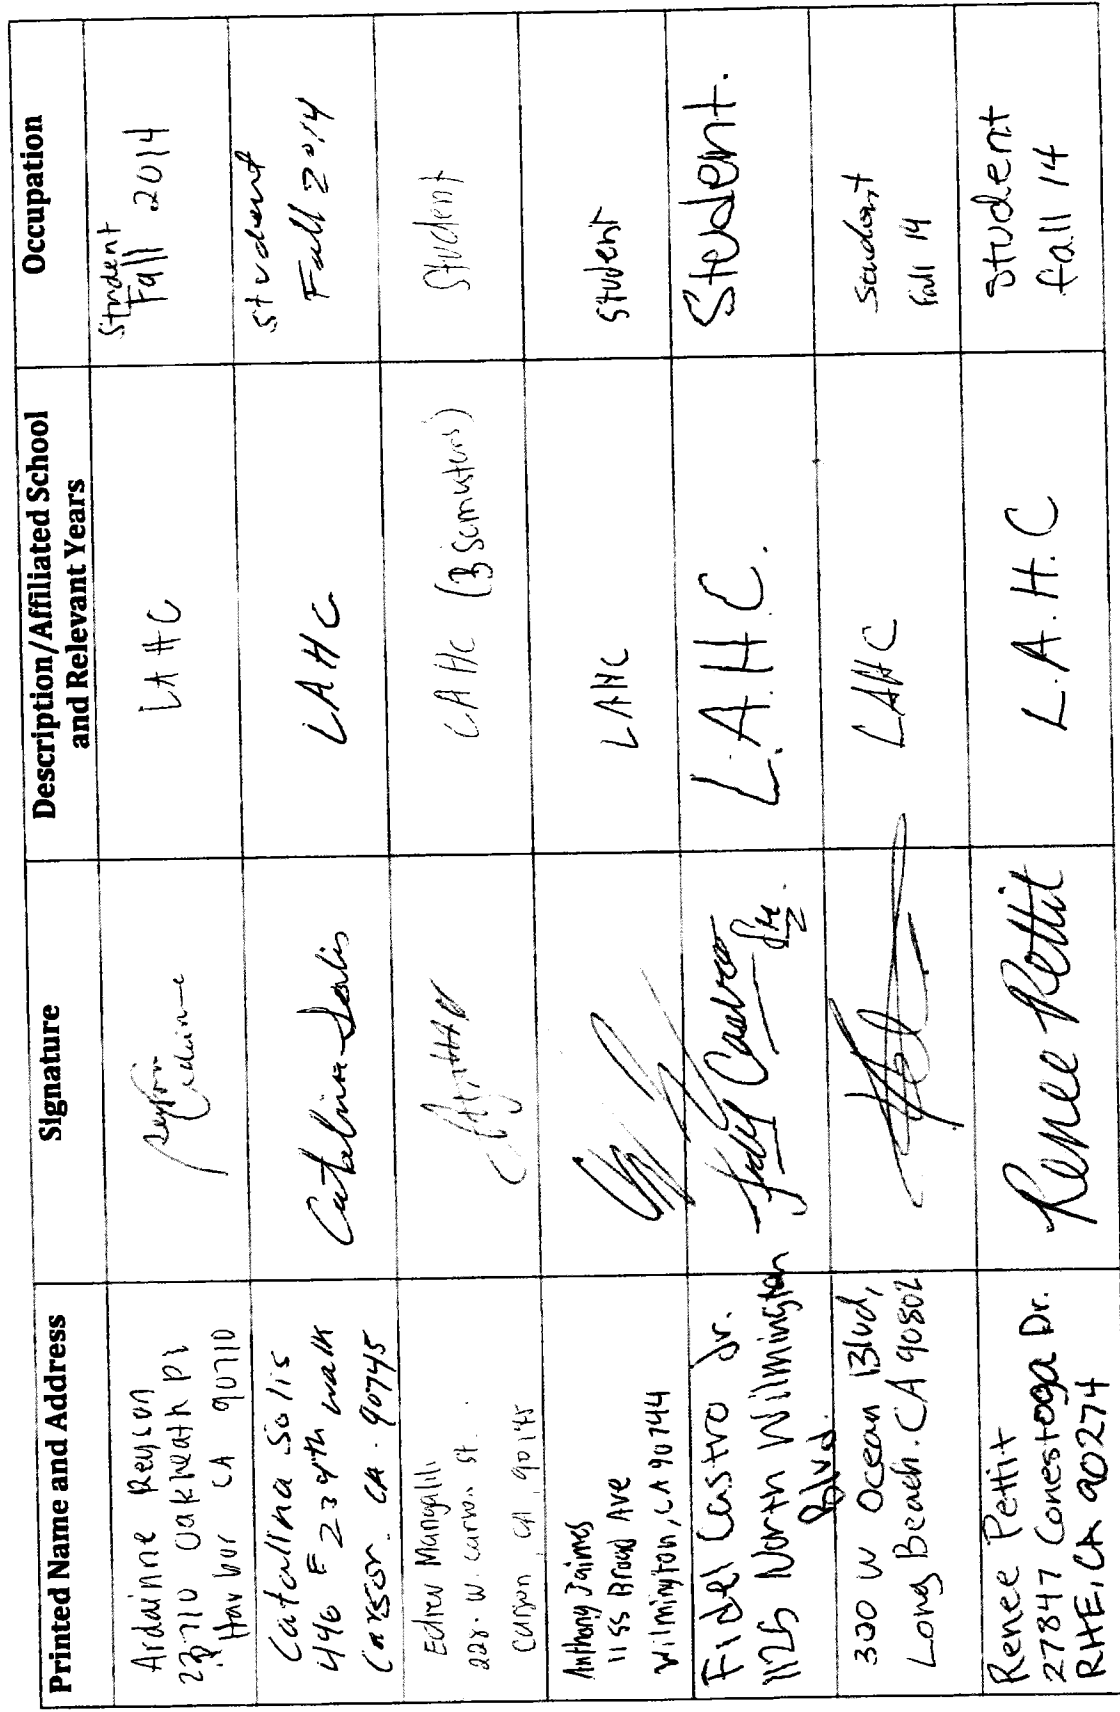 Printed Name and Address
Signature
Description/Affiliated School
and Relevant Years
Occupation
Ardainne Reyson
23710 Oakheath Pl
Harbor CA 90710
LAHC
Student
Fall 2014
Catalina Solis
446 E 234th walk
Carson. CA. 90745
Catalina Solis
LAHC
student
Fall 2014
Edrew Mangalili
228. W. Carson St.
Carson, CA, 90745
LAHC (3 Semusters)
Student
Anthony Jaimes
1155 Broad Ave
Wilmington, CA 90744
LAHC
Student
Fidel Castro Jr.
1125 North Wilmington
Blvd.
Fidel Castro
Jr.
L.A.H.C.
Student.
300 W Ocean Blvd,
Long Beach. CA 90802
LAHC
Student
Fall 14
Renee Pettit
27847 Conestoga Dr.
RHE, CA 90274
Renee Pettit
L.A.H.C
Student
fall 14